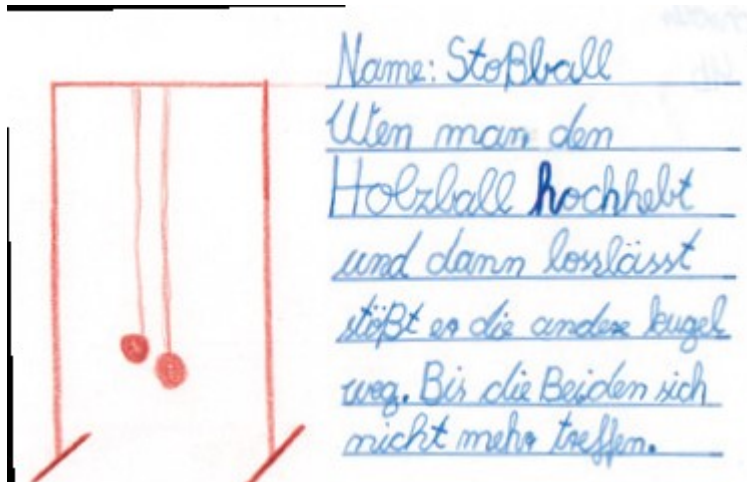 Name: Stoßball
Wen man den
Holzball hochhebt
und dann losslässt
stößt er die andere kugel
weg. Bis die Beiden sich
nicht mehr treffen.